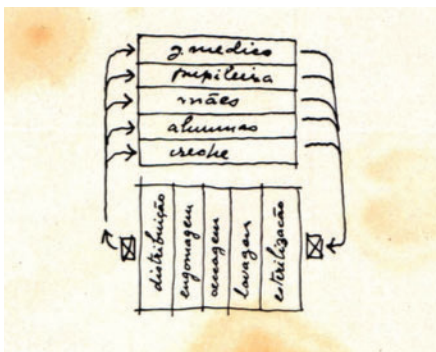 g. medico
pupileira
mães
alumnas
creche
distribuição
engomagem
secagem
lavagem
esterilização